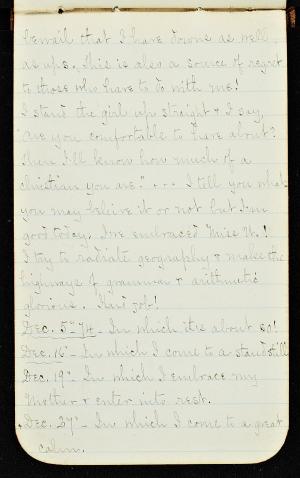 bewail that I have downs as well
as ups. This is also a source of regret
to those who have to do with me!
I stand the girl up straight & I say,
"Are you comfortable to have about?
Then I'll know how much of a
christian you are." - - - I tell you what
you may beleive it or not but I'm
good today. I've embraced Miss W.!
I try to radiate geography & make the
highways of grammar & arithmetic
glorious. Hard job!
Dec. 5" 74 - In which it is about so!
Dec. 16" - In which I come to a stand still
Dec. 19" - In which I embrace my
Mother & enter into rest.
Dec. 27" - In which I come to a great
calm.